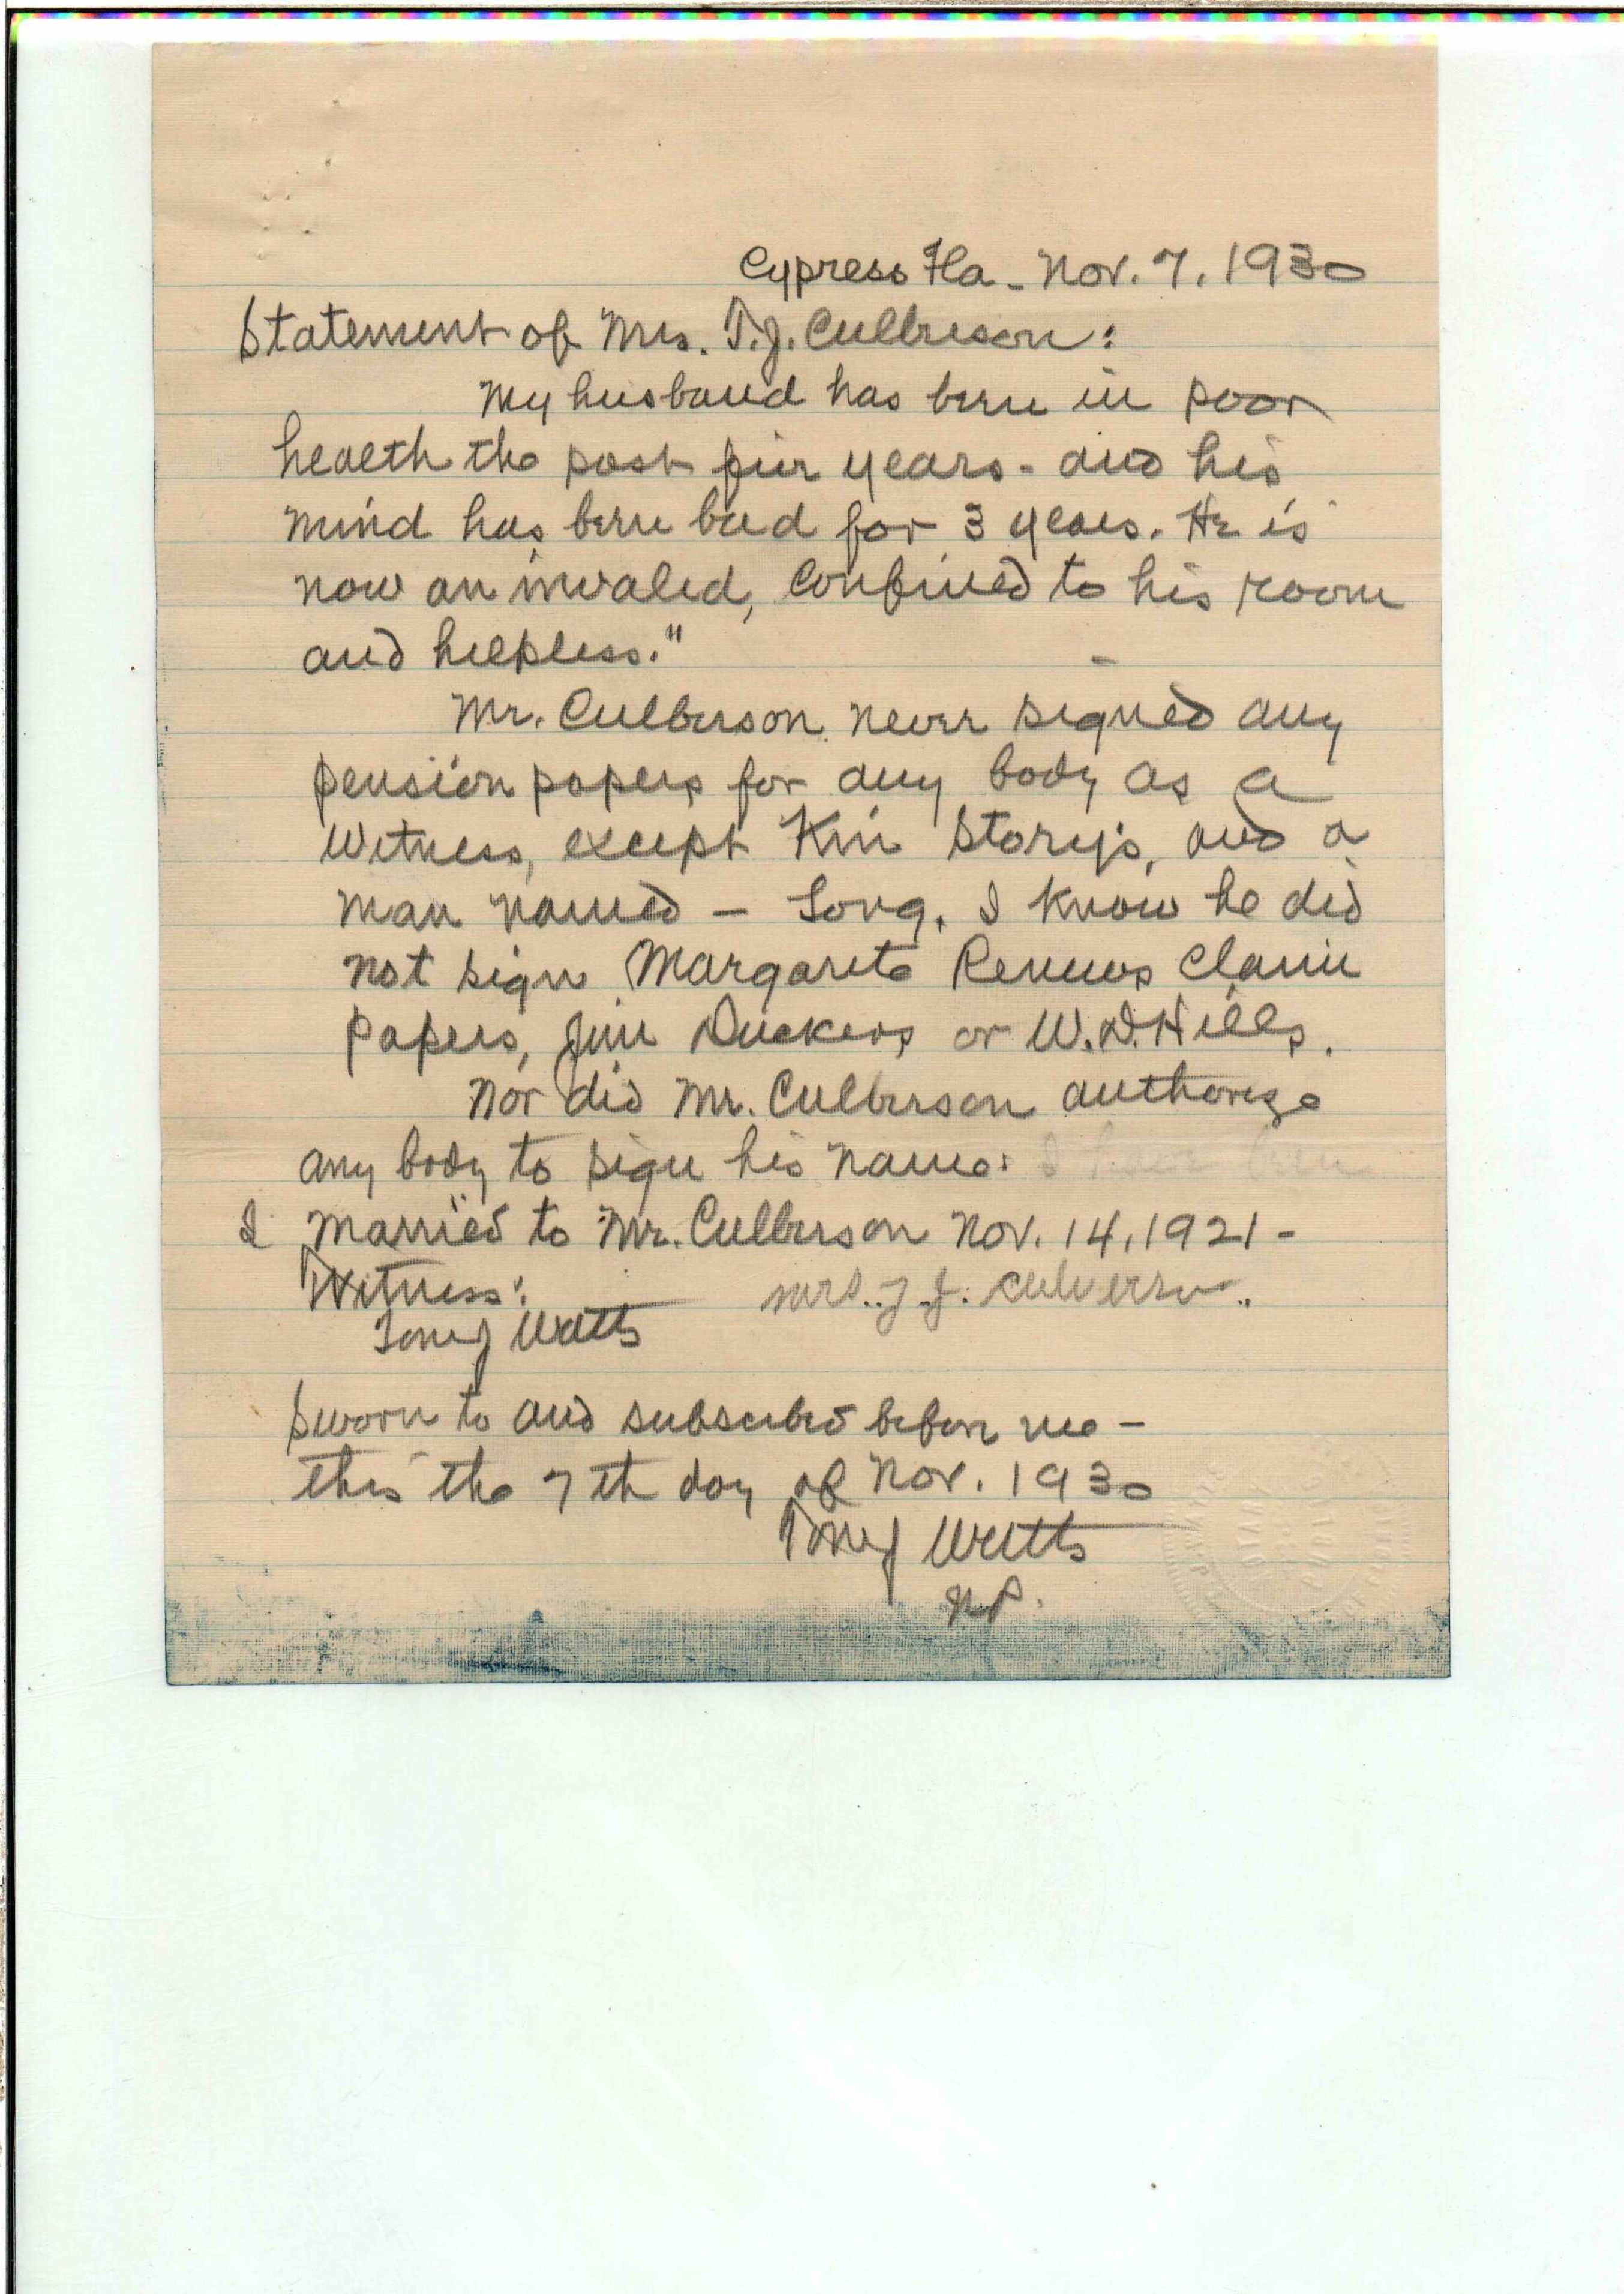 Cypress Fla - Nov. 7, 1930
Statement of Mrs. T.J. Culbreson:
My husband has been in poor
health the past five years - and his
mind has been bad for 3 years. He is
now an invaled, confined to his room
and helpless."
Mr. Culberson never signed any
pension papers for any body as a
Witness, except Kin Story's, and a
man named - Long. I know he did
not sign Margarete claim
papers, Jim Duckers or W.D. Hills.
Nor did Mr. Culberson authorize
any body to sign his name. I have been
I married to Mr. Culberson Nov. 14, 1921 -
Witness: Mrs. T.J. Culverson.
Toney Watts
Sworn to and subscribed before me -
this the 7th day of Nov. 1930
Toney Watts
N.P.